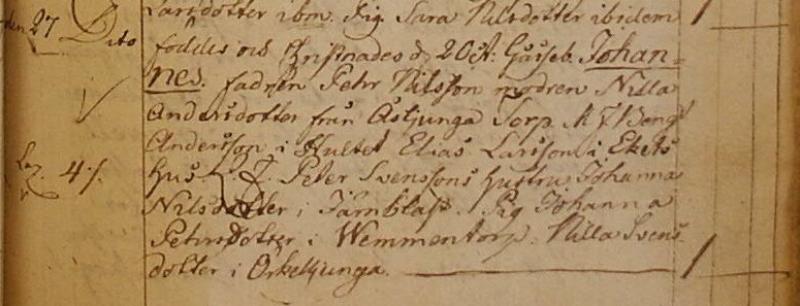 Larsdotter ibm. Pig. Sara Nilsdotter ibidem
27 Dito föddes och Christnades d. 2 Oct: Gässeb. Johan=
nes. fadren Pehr Nilsson modren Nilla
Andersdotter från Åsljunga Torp. Bengt
Andersson i Hultet Elias Larsson i Ekets
4 s. Hus. Peter Svenssons hustru Johanna
Nilsdotter i Jernblåst. Pig Johanna
Pehrsdotter i Wemmentorp. Nilla Svens
dotter i Örkelljunga.